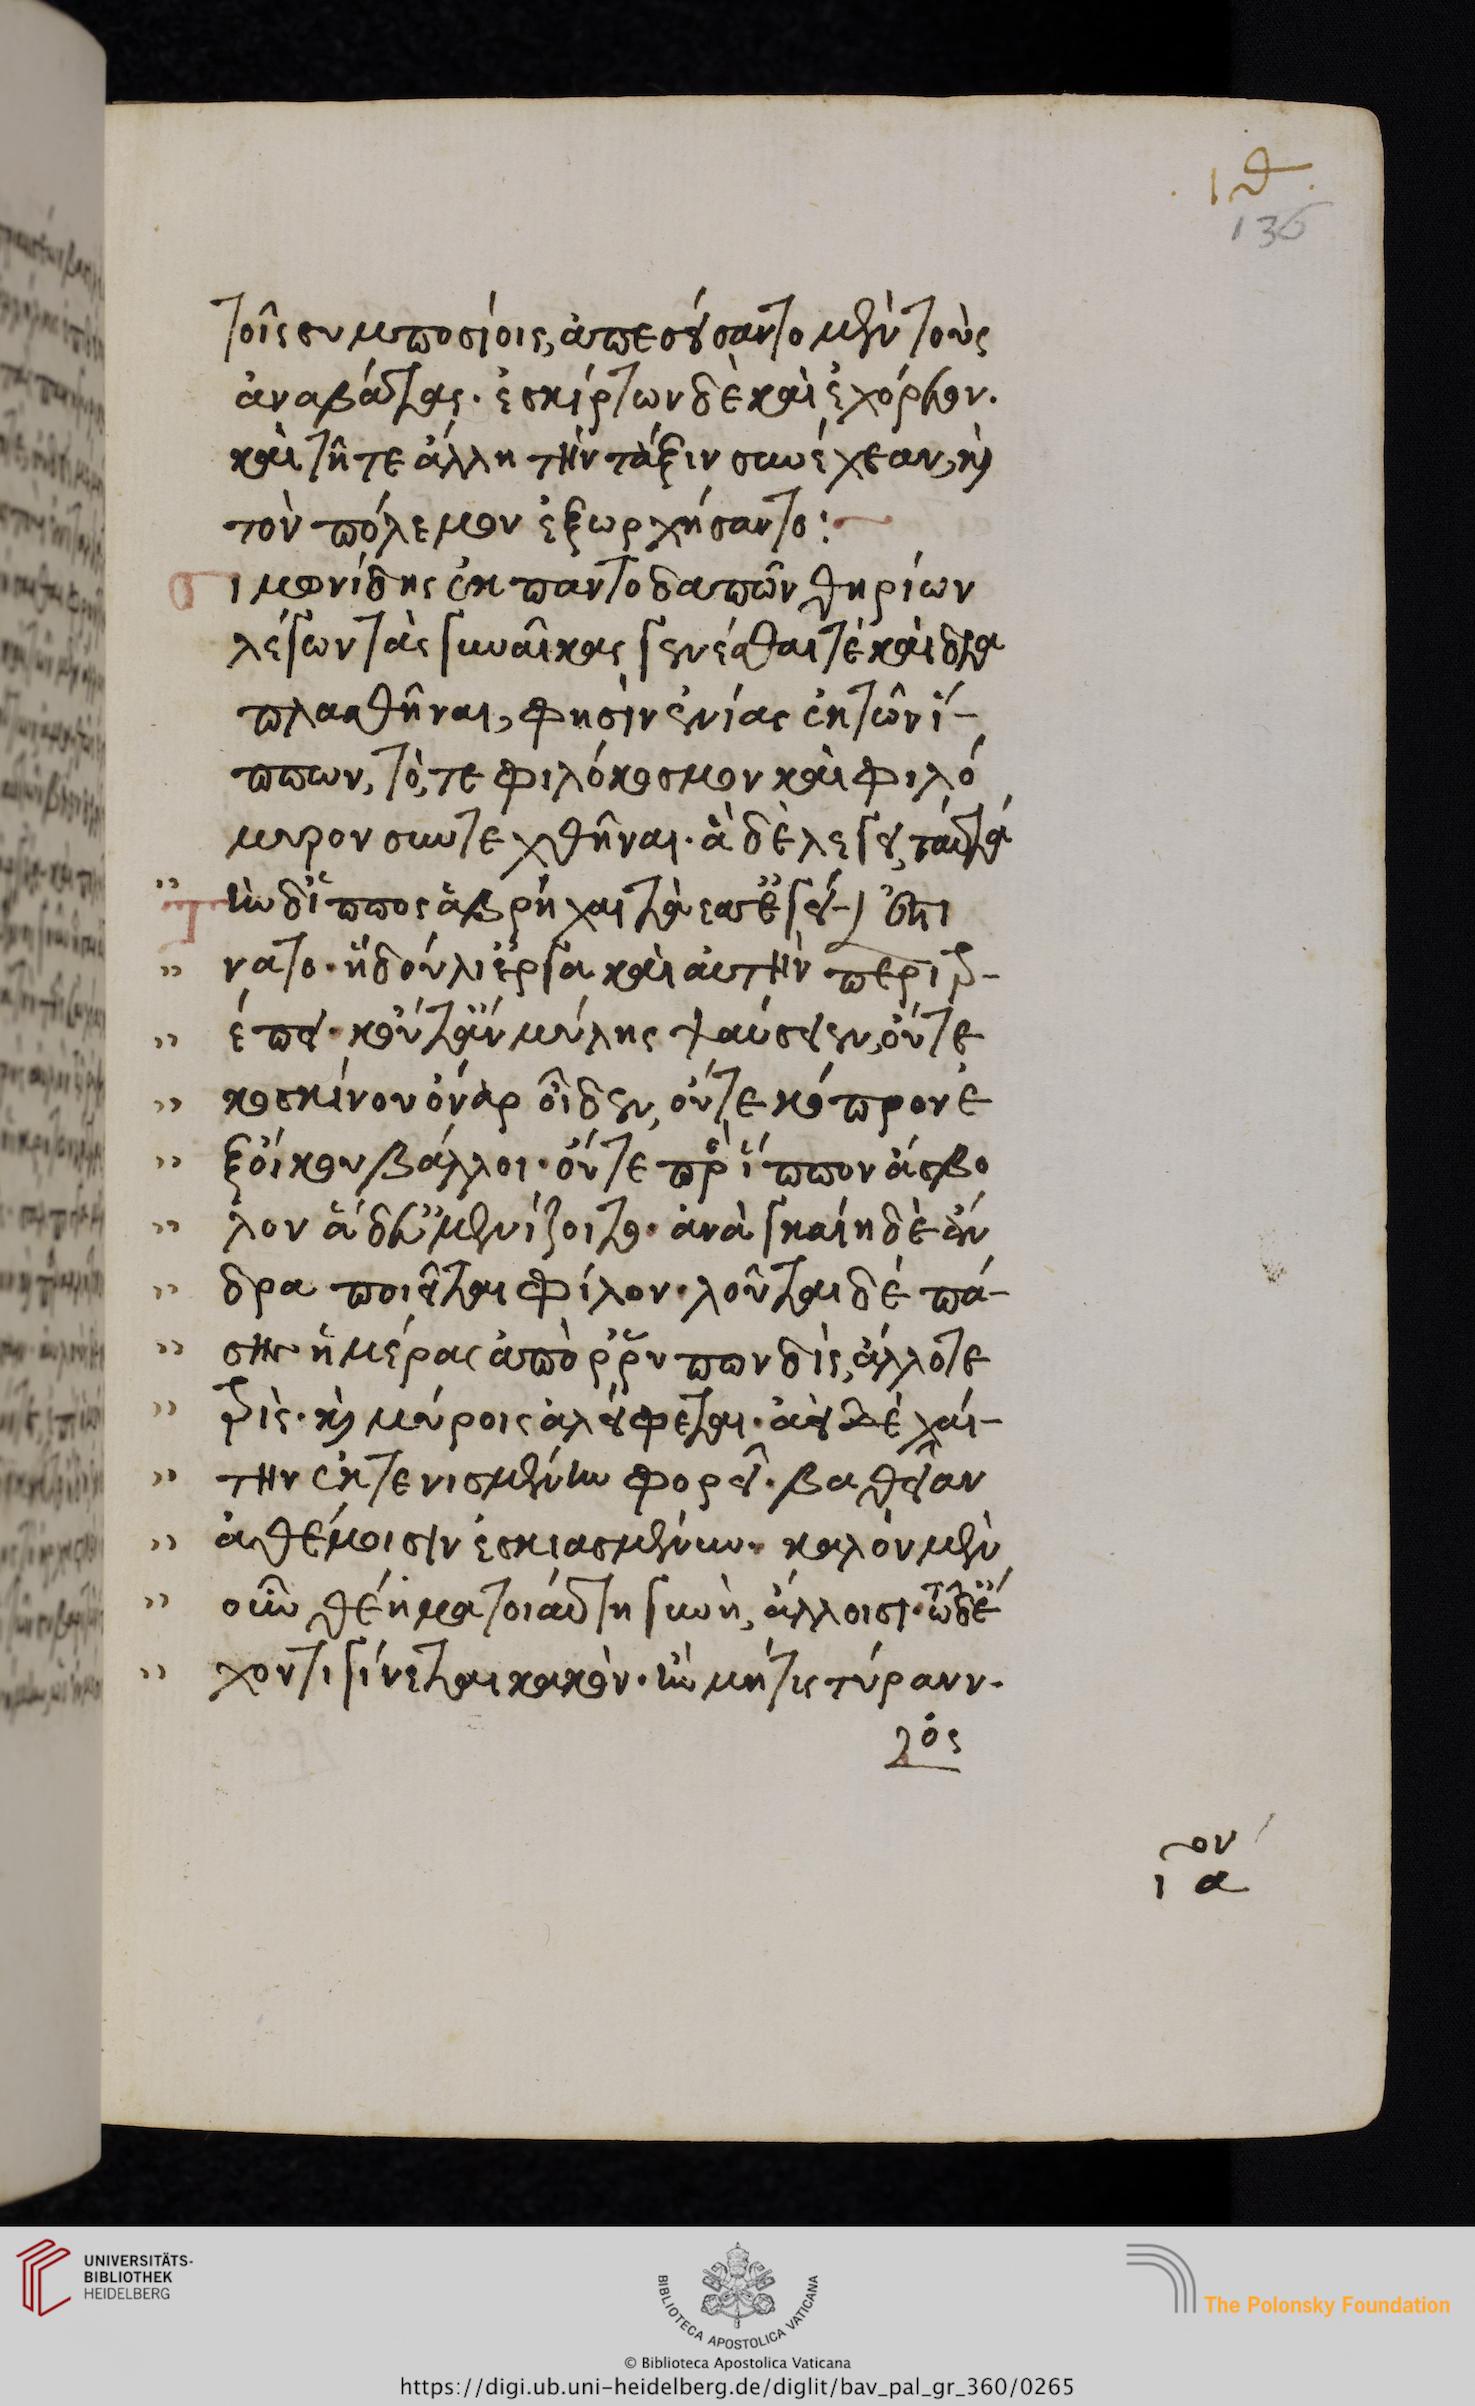 ιθ
136
τοῖς συμποσίοις, ἀπεσείσαντο μὲν τοὺς
ἀναβάτας· ἐσκίρτων δὲ καὶ ἐχόρευον·
καὶ τῆτε ἄλλη τὴν τάξιν συνέχεαν, καὶ
τὸν πόλεμον ἐξωρχήσαντο:
σιμωνίδης ἐκ παντοδαπῶν θηρίων
λέγων τὰς γυναῖκας γενέσθαι τὲ καὶ δια
πλασθῆναι, φησὶν ἐνίαις ἐκ τῶν ἵ-
ππων, τό, τε φιλόκοσμον καὶ φιλό
μυρον συντεχθῆναι· ἃ δὲ λέγει, ταῦτά
τὴν δ' ἵππος ἁβρὴ χαιτέεσσ' ἐγεί
νατο· ἣ δούλι' ἔργα καὶ αὐτὴν περιτρ-
έπει· κοὔτ' ἂν μύλης ψαύσειεν, οὔτε
κοσκίνον ὄναρ οἶδεν, οὔτε κόπρον ἐ
ξοίκου βάλλοι· οὔτε πρὸς ἵππον ἄσβο
λον ἀδευμὲν ἵζοιτο· ἀνάγκαίη δὲ ἄν
δρα ποιεῖται φίλον· λοῦται δὲ πά-
σης ἡμέρας ἀπορρύππον δὶς, ἄλλοτε
τρὶς· καὶ μύροις ἀλείφεται· ἀεὶ δὲ χαί-
την ἐκτενισμένην φορεῖ· βαθεῖαν
ἀνθέμοισιν ἐσκιασμένην· καλὸν μὲν
οὖν θέημα τοιαύτη γυνὴ, ἄλλοισι· τῷ δ' ἔ
χοντι γίνεται κακὸν· ἢν μή τις τύρανν·
λος
ον
ια
UNIVERSITÄTS-
BIBLIOTHEK
HEIDELBERG
BIBLIOTECA APOSTOLICA VATICANA
The Polonsky Foundation
© Biblioteca Apostolica Vaticana
https://digi.ub.uni-heidelberg.de/diglit/bav_pal_gr_360/0265